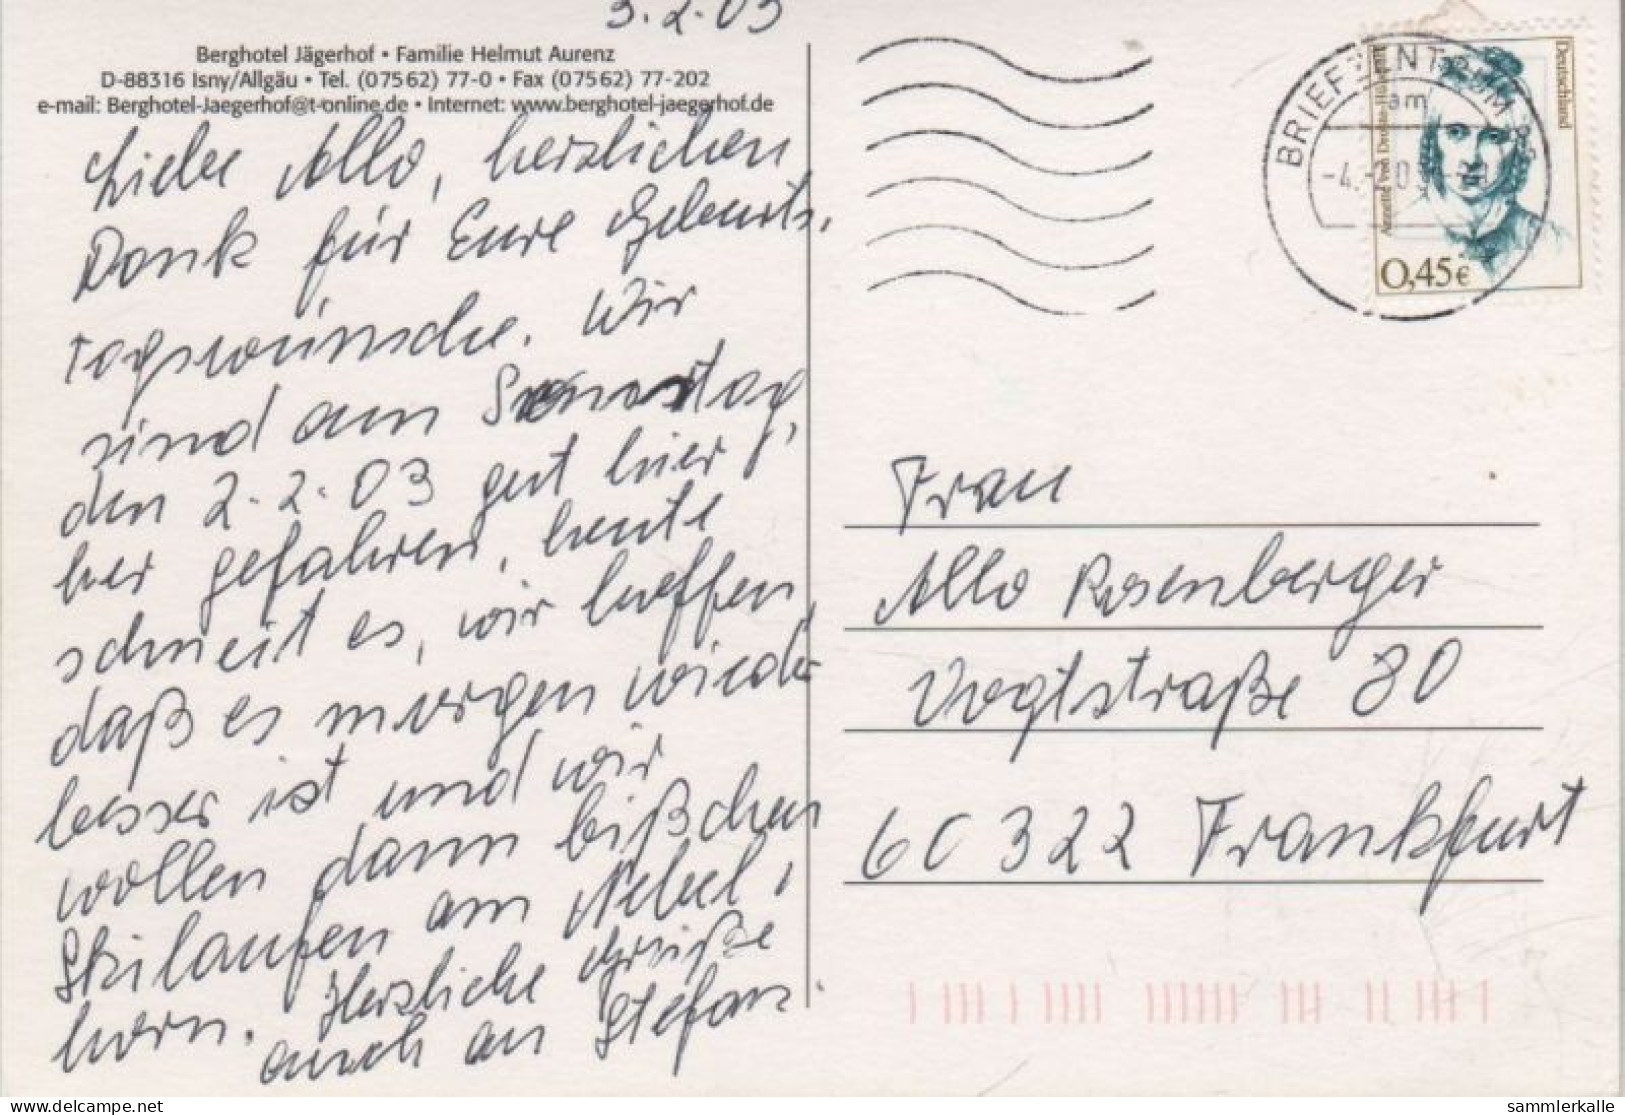 3.2.03
Berghotel Jägerhof • Familie Helmut Aurenz
D-88316 Isny/Allgäu • Tel. (07562) 77-0 • Fax (07562) 77-202
e-mail: Berghotel-Jaegerhof@t-online.de • Internet: www.berghotel-jaegerhof.de
Liebe Allo, herzlichen
Dank für Eure Geburts-
tagswünsche. Wir
sind am Sonntag,
den 2.2.03 gut hier
her gefahren, heute
schneit es, wir hoffen
daß es morgen wieder
besser ist und wir
wollen dann bißchen
Skilaufen am Nebel,
horn. Herzliche Grüße
auch an Stefan.
BRIEFZENTRUM
am
Deutschland
Annette von Droste-Hülshoff
0,45€
Frau
Allo Rosenberger
Vogtstraße 80
60322 Frankfurt
delcampe.net
sammlerkalle